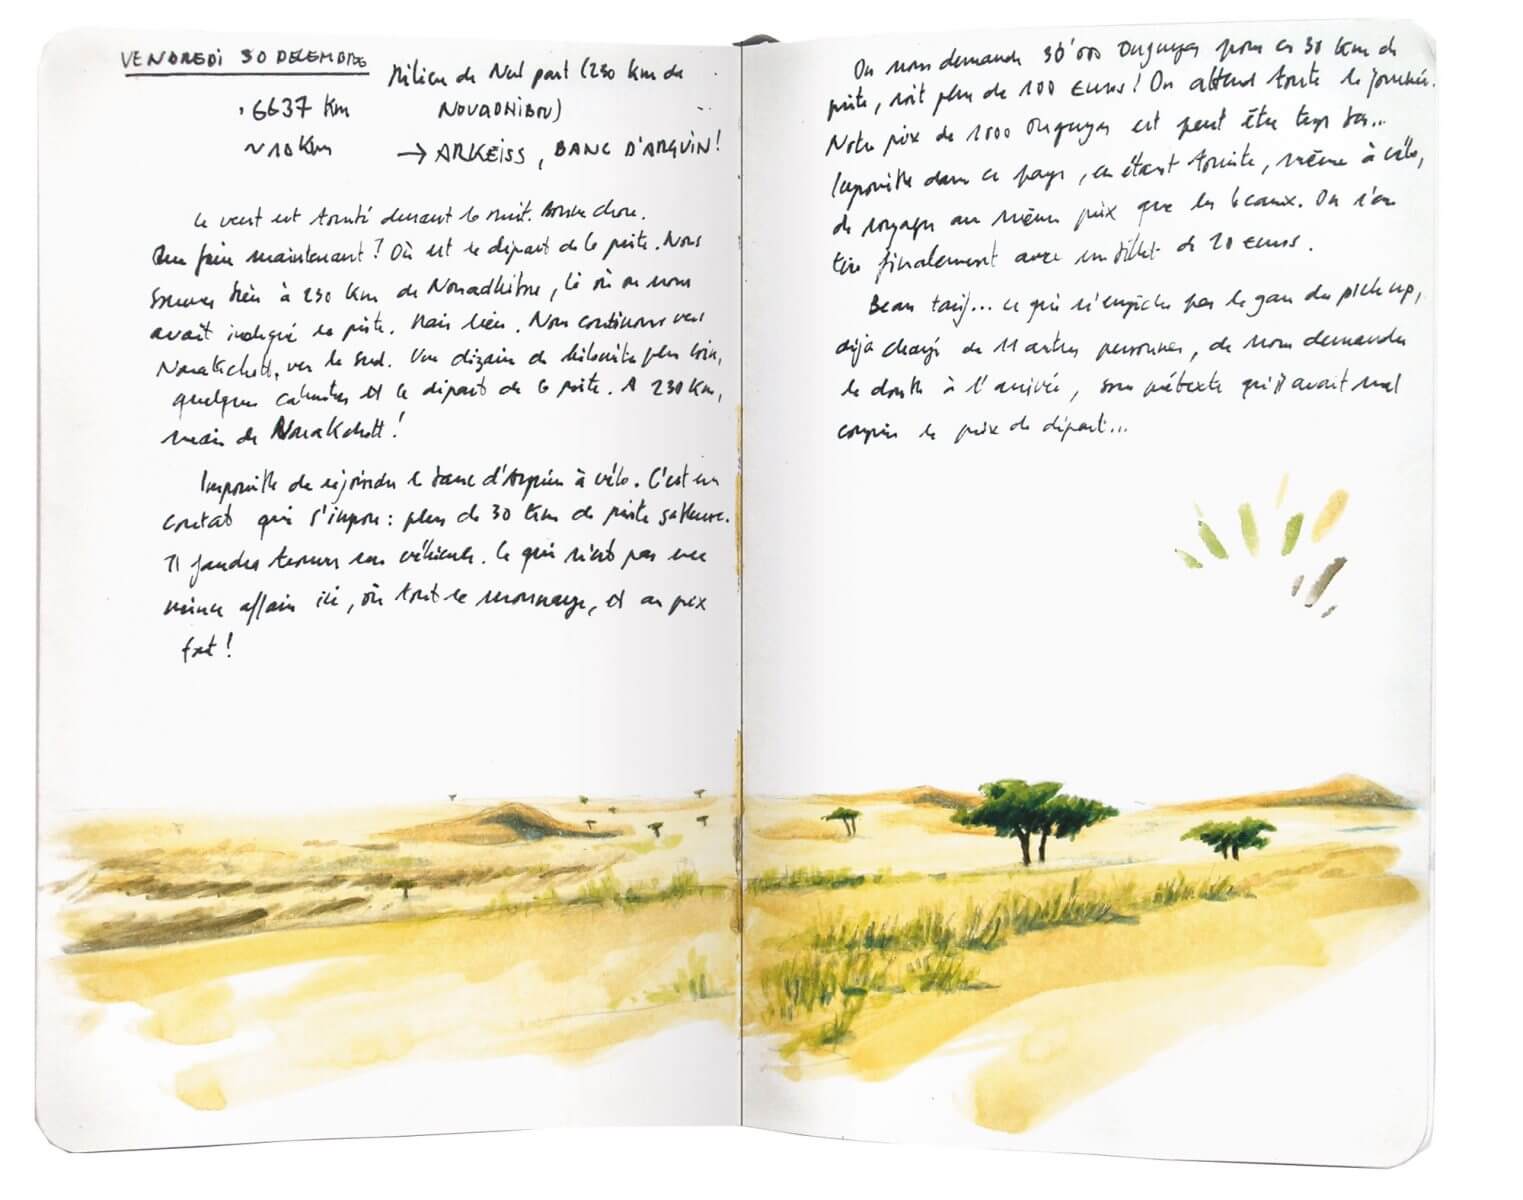 VENDREDI 30 DECEMBRE
Milieu de Nul part (230 km de
NOUADHIBOU)
. 6637 km
~ 10 km
→ ARKEISS, BANC D'ARQUIN !
Le vent est tombé durant la nuit. Bonne chose.
Que faire maintenant ? Où est le départ de la piste. Nous
sommes bien à 230 km de Nouadhibou, là où on nous
avait indiqué la piste. Mais rien. Nous continuons vers
Nouakchott, vers le sud. Une dizaine de kilomètre plus loin,
quelques cahuttes et le départ de la piste. A 230 km,
mais de Nouakchott !
Impossible de rejoindre le banc d'Arguin à vélo. C'est un
constat qui s'impose : plus de 30 km de piste sableuse.
Il faudra trouver un véhicule. Ce qui n'est pas une
mince affaire ici, où tout se monnaye, et au prix
fort !
On nous demande 30'000 Ouguyas pour ces 30 km de
piste, soit plus de 100 euros ! On attend toute la journée.
Notre prix de 1000 Ouguyas est peut être trop bas...
Impossible dans ce pays, en étant touriste, même à vélo,
de voyager au même prix que les locaux. On s'en
tire finalement avec un billet de 20 euros.
Beau tarif... ce qui n'empêche pas le gars du pick up,
déjà chargé de 11 autres personnes, de nous demander
le double à l'arrivée, sous prétexte qu'il avait mal
compris le prix de départ...